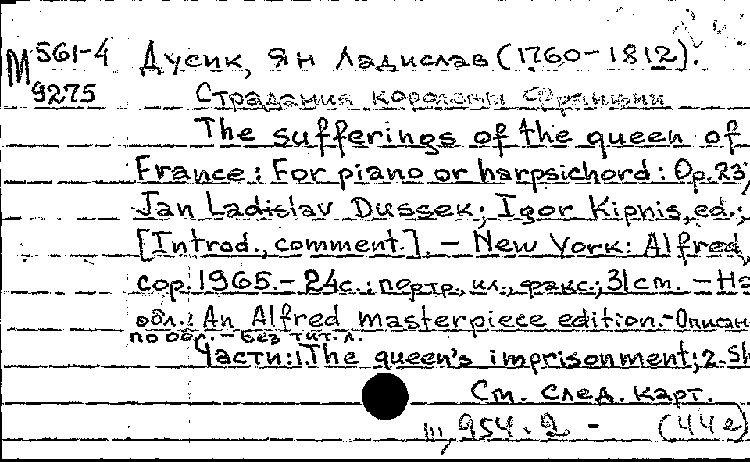 М 561-4
9275
Дусик, Ян Ладислав (1760-1812).
Страдания королевы Франции
The sufferings of the queen of
France: For piano or harpsichord: Op. 23,
Jan Ladislav Dussek; Igor Kipnis, ed.;
[Introd., comment.]. - New York: Alfred,
cop. 1965. - 24с.: портр., ил., факс.; 31см. - На
обл.: An Alfred masterpiece edition. - Описан
по обл. - Без тит. л.
Части: 1. The queen's imprisonment; 2. Sh
См. след. карт.
954.2 - (44е)